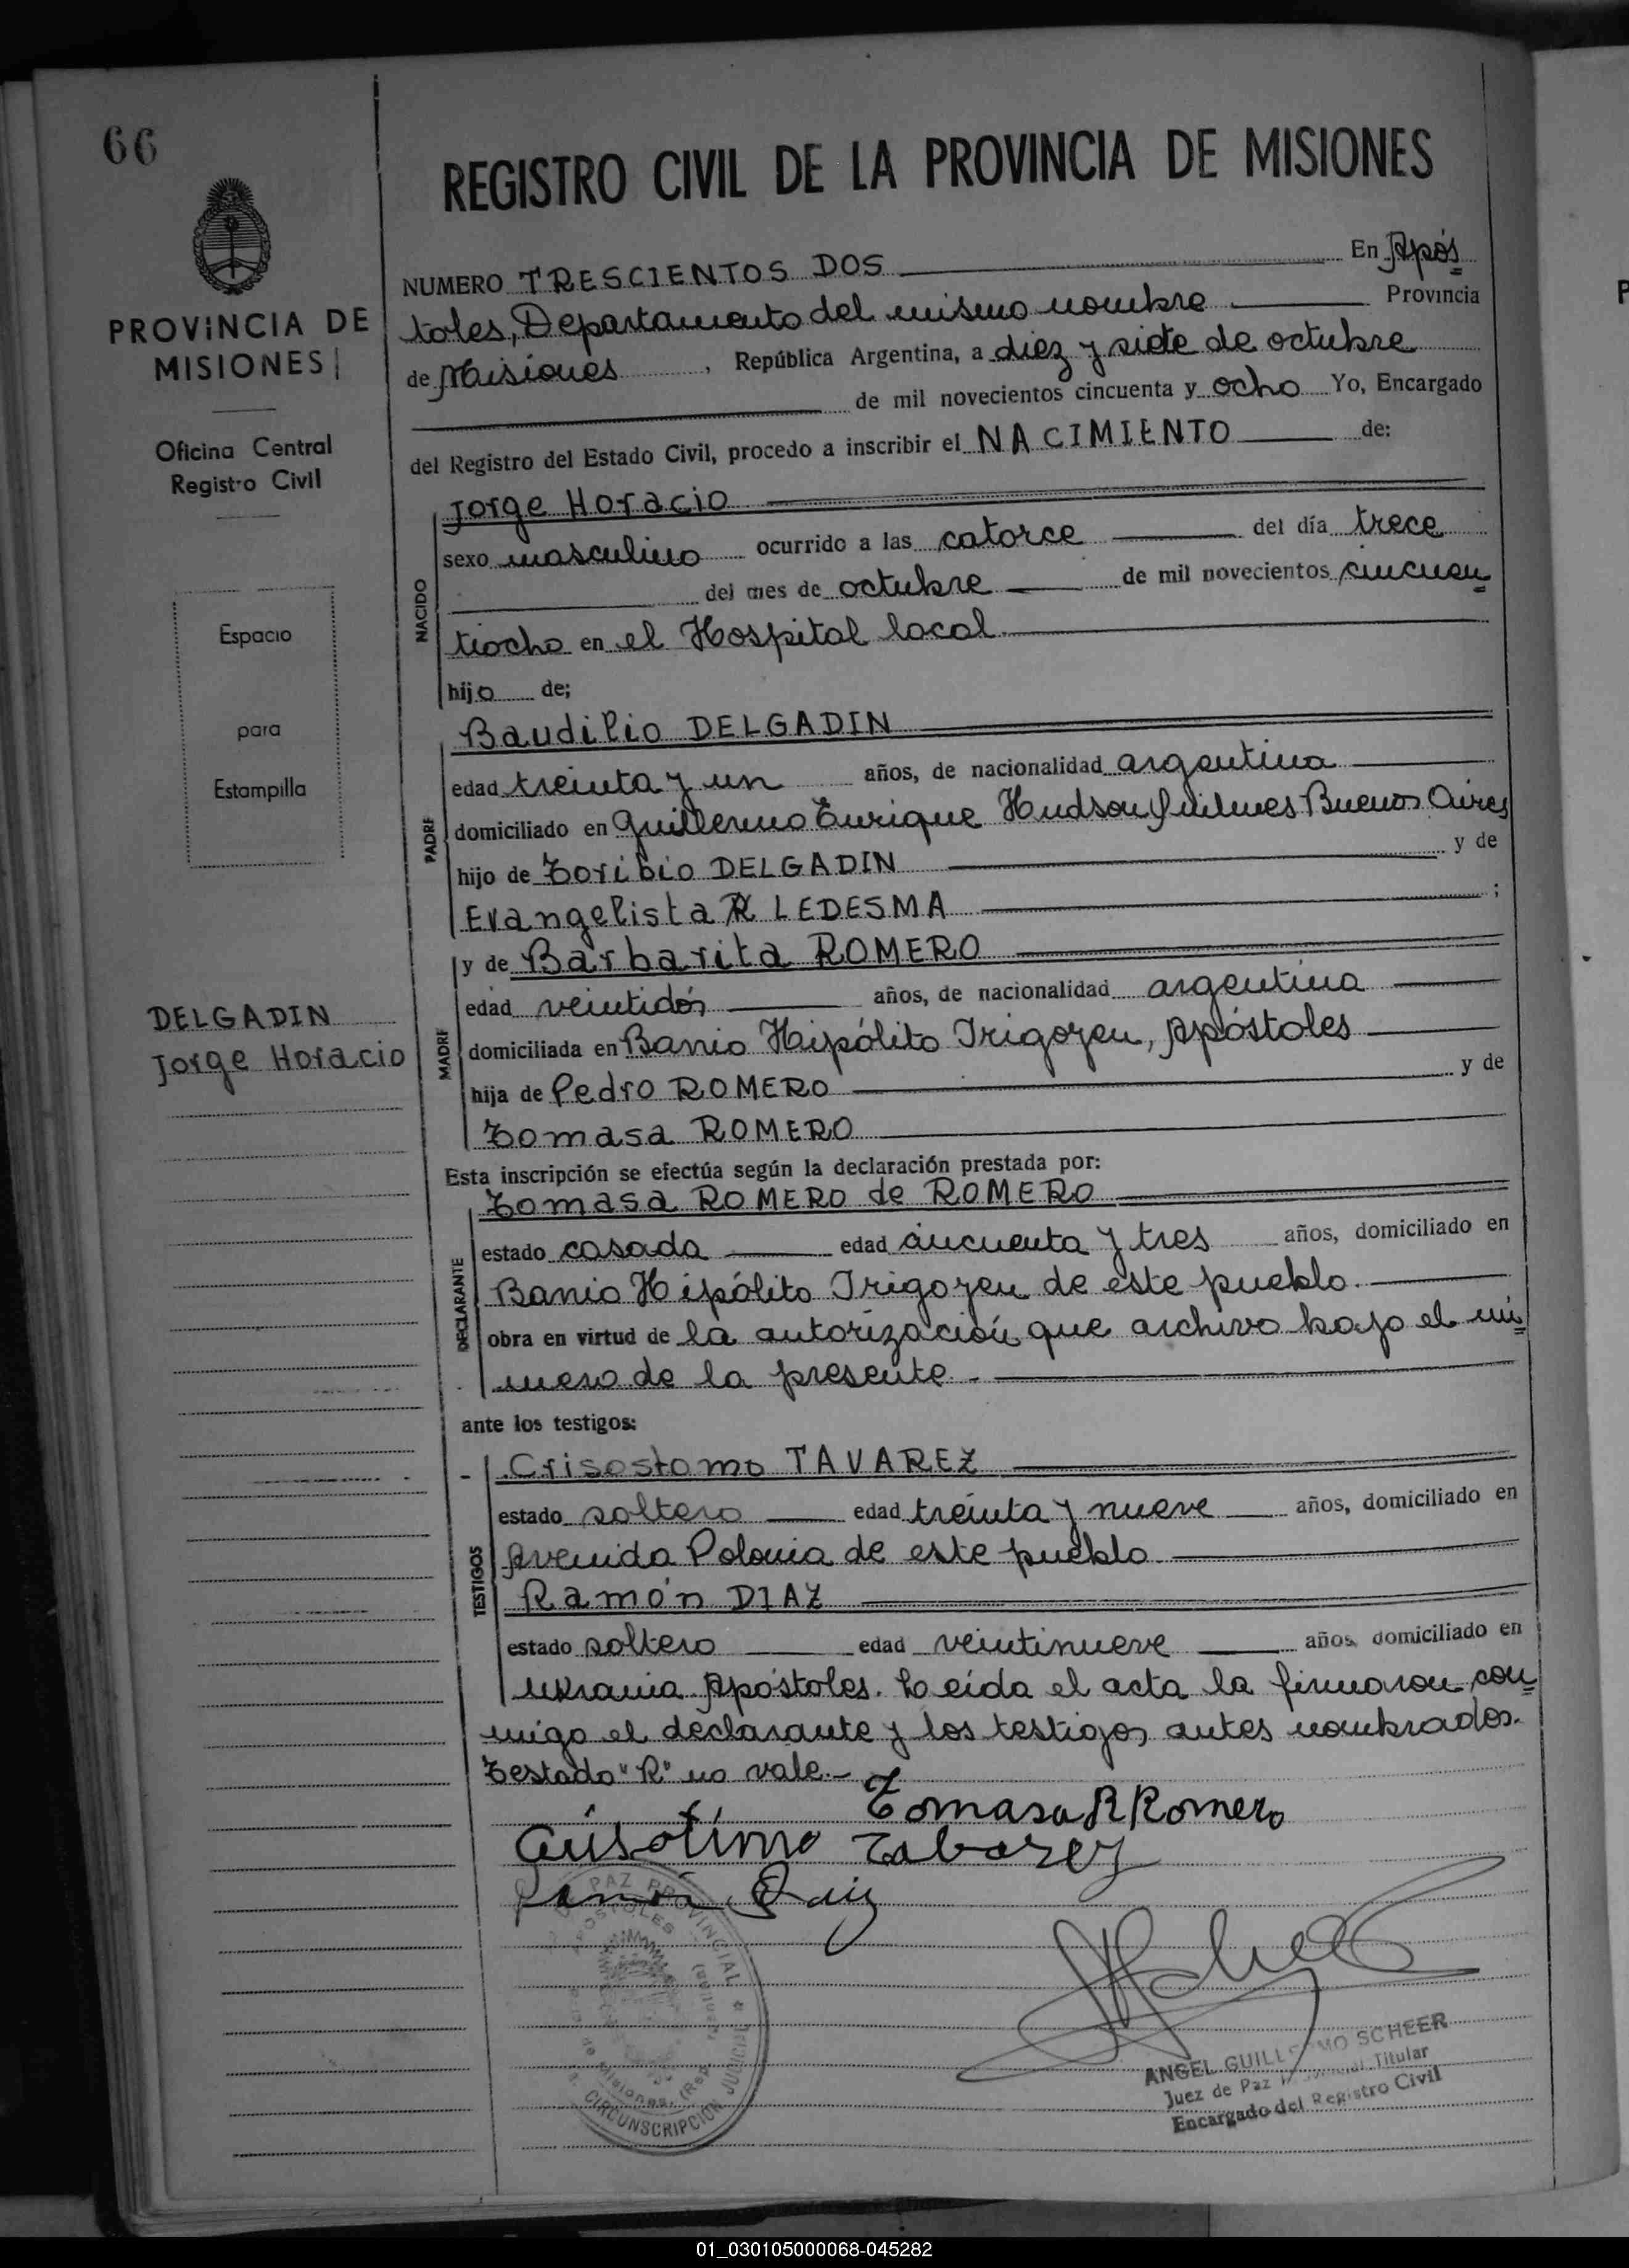 66
PROVINCIA DE
MISIONES
Oficina Central
Registro Civil
Espacio
para
Estampilla
DELGADIN
Jorge Horacio
REGISTRO CIVIL DE LA PROVINCIA DE MISIONES
NUMERO TRESCIENTOS DOS En Após
toles, Departamento del mismo nombre Provincia
de Misiones, República Argentina, a diez y siete de octubre
de mil novecientos cincuenta y ocho Yo, Encargado
del Registro del Estado Civil, procedo a inscribir el NACIMIENTO de:
NACIDO
Jorge Horacio
sexo masculino ocurrido a las catorce del día trece
del mes de octubre de mil novecientos cincuen
tiocho en el Hospital local.
hijo de;
PADRE
Baudilio DELGADIN
edad treinta y un años, de nacionalidad argentina
domiciliado en Guillermo Enrique Hudson Quilmes Buenos Aires
hijo de Toribio DELGADIN y de
Evangelista R LEDESMA ;
MADRE
y de Barbarita ROMERO
edad veintidós años, de nacionalidad argentina
domiciliada en Barrio Hipólito Irigoyen, Apóstoles
hija de Pedro ROMERO y de
Tomasa ROMERO
Esta inscripción se efectúa según la declaración prestada por:
DECLARANTE
Tomasa ROMERO de ROMERO
estado casada edad cincuenta y tres años, domiciliado en
Barrio Hipólito Irigoyen de este pueblo.
obra en virtud de la autorización que archivo bajo el nú
mero de la presente.-
ante los testigos:
TESTIGOS
Crisostomo TAVAREZ
estado soltero edad treinta y nueve años, domiciliado en
Avenida Polonia de este pueblo
Ramón DIAZ
estado soltero edad veintinueve años, domiciliado en
Ukrania Apóstoles. Leída el acta la firmaron con
migo el declarante y los testigos antes nombrados.
Testado "R" no vale.-
Tomasa R Romero
Crisotimo Tabarez
Ramón Diaz
PAZ PROVINCIAL
APOSTOLES
de Misiones (Rep.
CIRCUNSCRIPCION JUDICIAL
ANGEL GUILLERMO SCHEER
Juez de Paz Titular
Encargado del Registro Civil
01_030105000068-045282